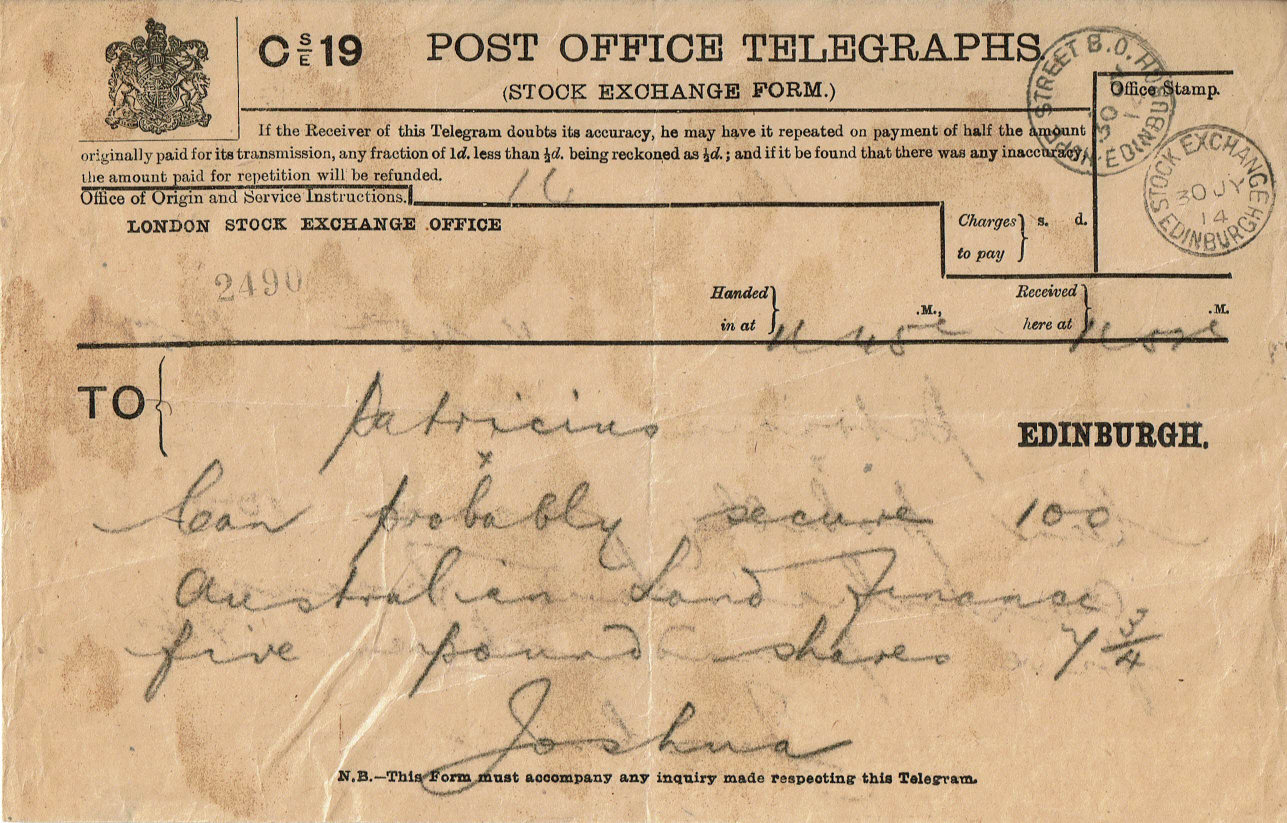 C S/E 19 POST OFFICE TELEGRAPHS.
(STOCK EXCHANGE FORM.)
HOPE STREET B.O. EDINBURGH
30 JY
14
Office Stamp.
STOCK EXCHANGE
30 JY
14
EDINBURGH
If the Receiver of this Telegram doubts its accuracy, he may have it repeated on payment of half the amount
originally paid for its transmission, any fraction of 1d. less than ½d. being reckoned as ½d.; and if it be found that there was any inaccuracy,
the amount paid for repetition will be refunded.
Office of Origin and Service Instructions.
LONDON STOCK EXCHANGE OFFICE
Charges to pay } s. d.
2490
Handed in at } 11 45 .M.,
Received here at } 11 .M.
TO { Patricius
EDINBURGH.
x
Can probably secure 100
Australian Land Finance
five pound shares 7 3/4
Joshua
N.B.—This Form must accompany any inquiry made respecting this Telegram.